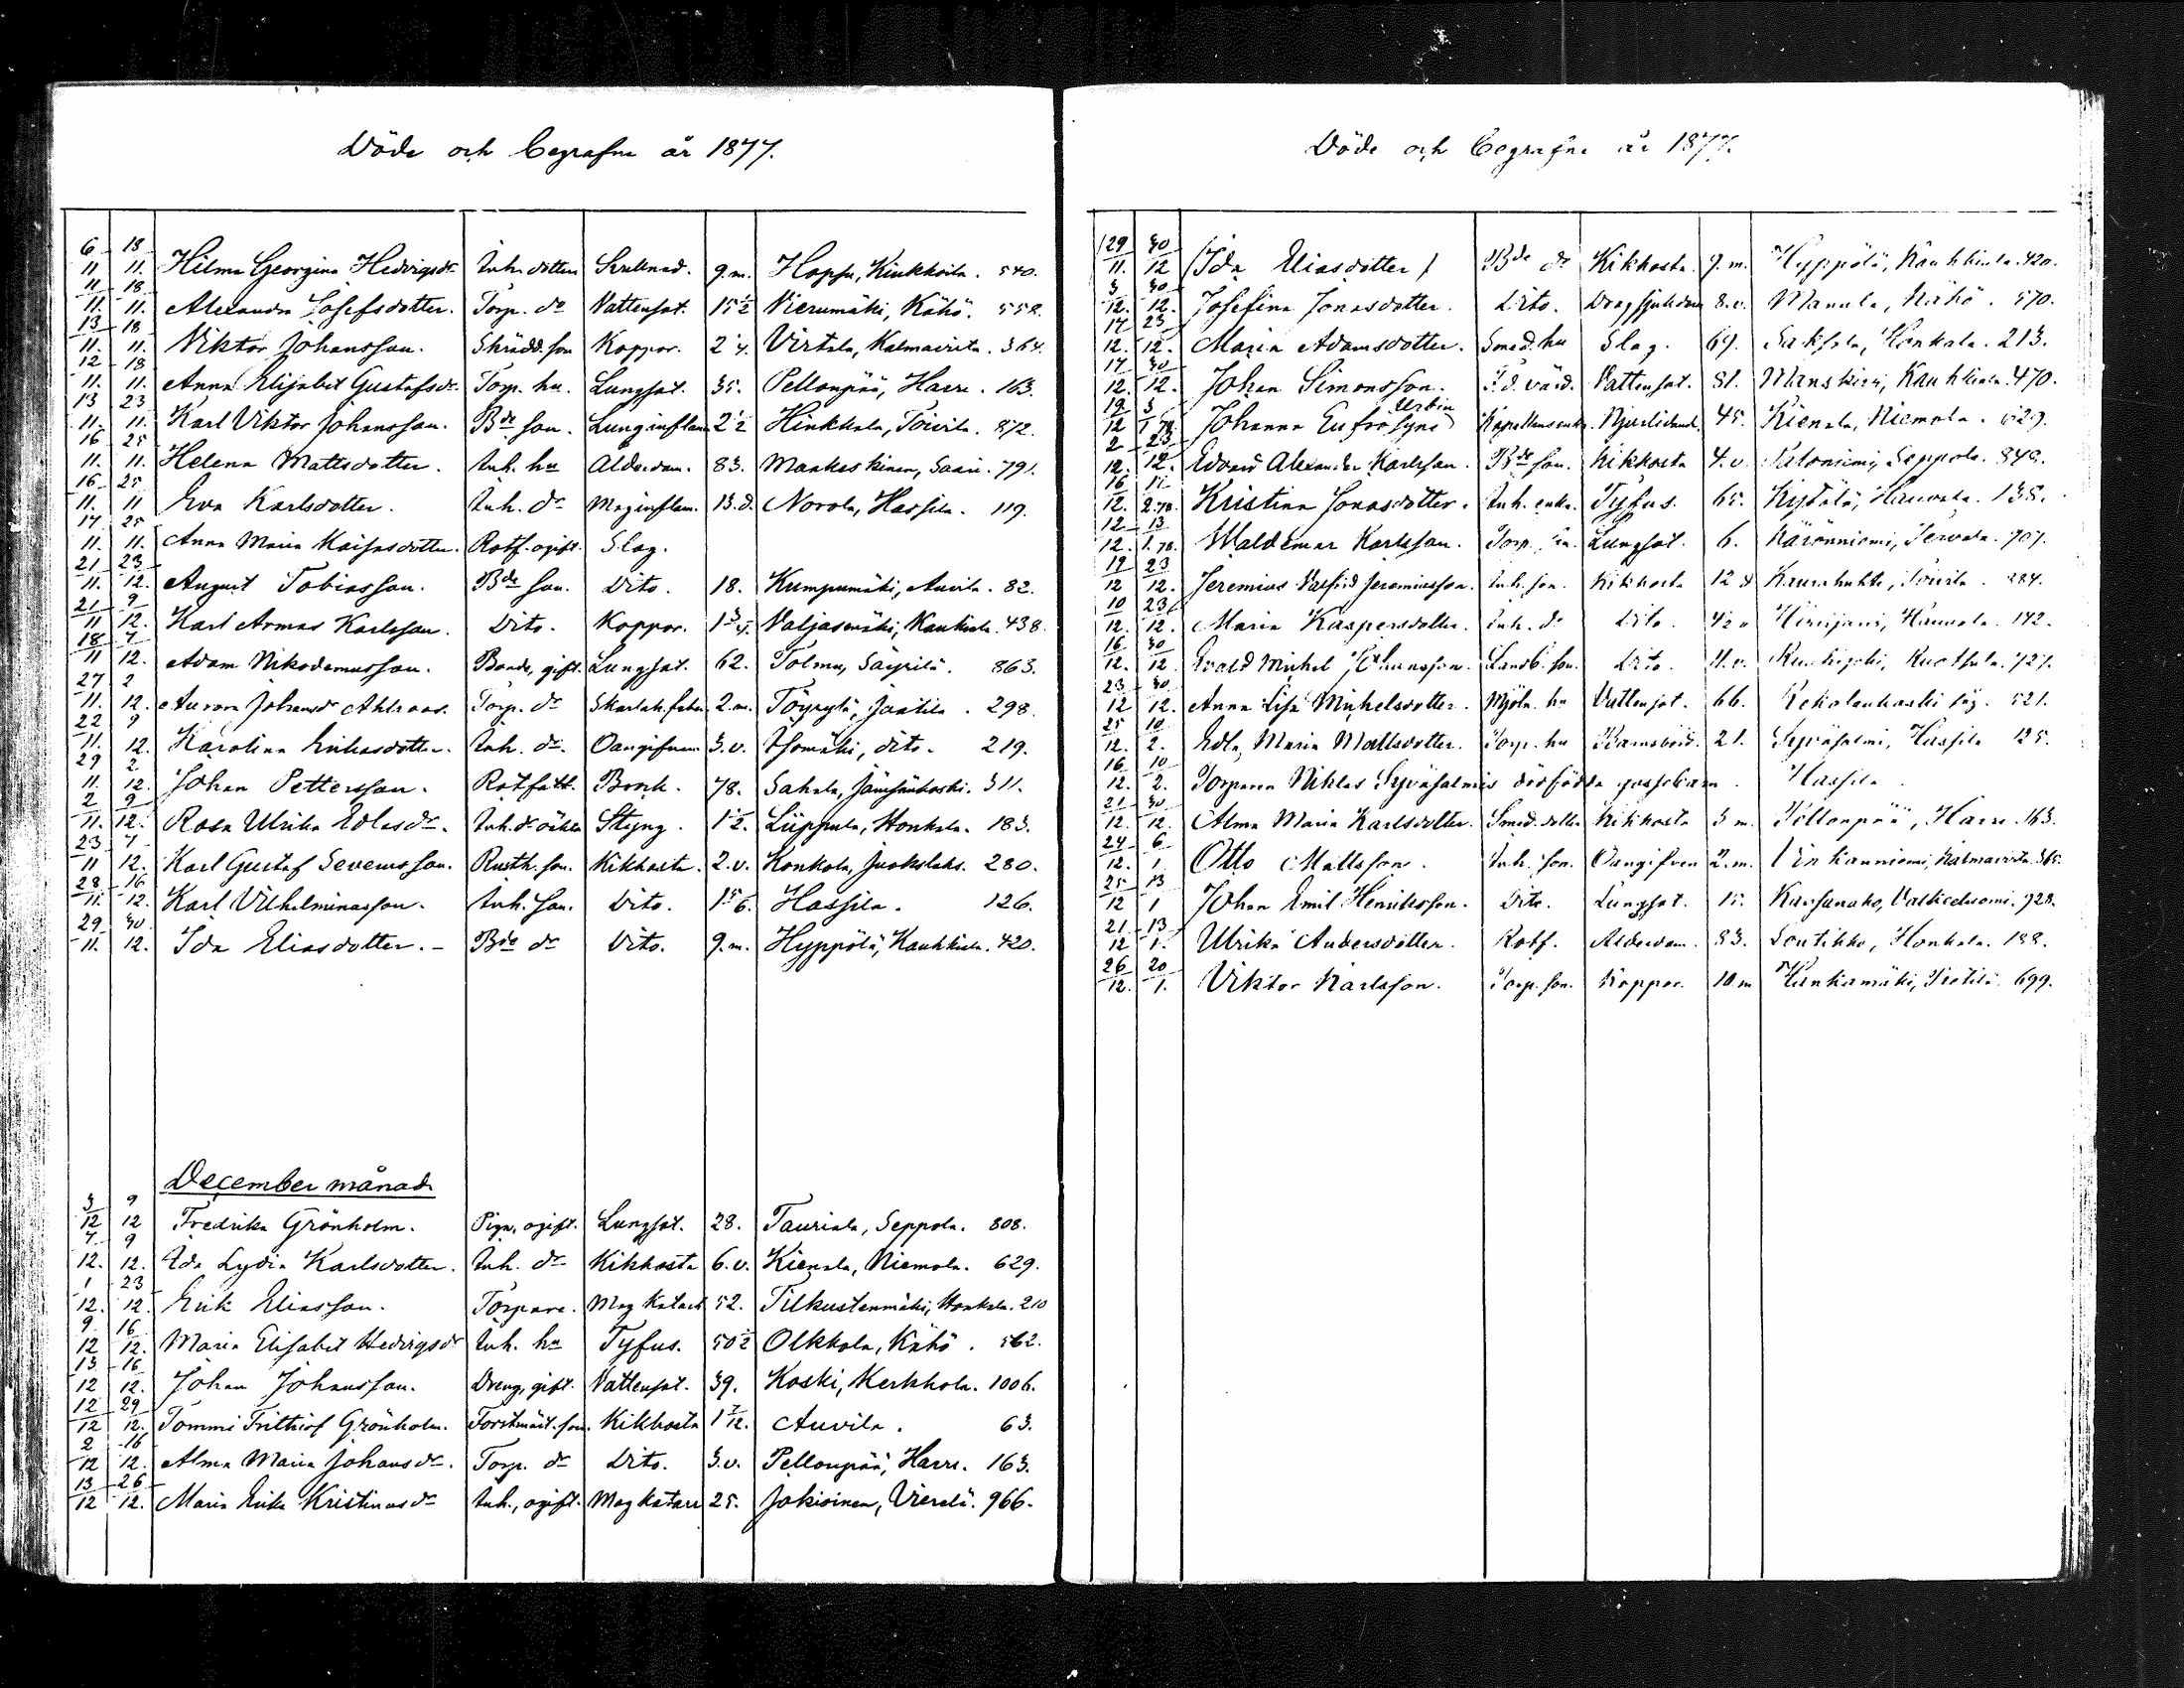 Döde och begrafne år 1877.
6/11 18/11. Hilma Georgina Hedvigsdr Inh. dotter Svullnad. 9.m. Hopsu, Kinkkoila. 540.
11/11. 18/11. Alexandra Josefsdotter. Torp. dr Vattensot. 15½ Vierumäki, Kähö. 558.
13/11. 18/11. Viktor Johansson. Skrädd. son Koppor. 2¼. Virtala, Kalmavirta. 364.
12/11. 18/11. Anna Elisabet Gustafsdr. Torp. hu. Lungsot. 35. Pellonpää, Harre. 163.
13/11. 23/11. Karl Viktor Johansson. Bde son. Lunginflam 2½ Hinkkala, Toivila. 872.
16/11. 25/11. Helena Mattsdotter. Inh. hu Alderdom. 83. Maakeskinen, Saari. 791.
16/11. 25/11 Eva Karlsdotter. Inh. dr Maginflam. 13.d. Norola, Hassila. 119.
17/11. 25/11. Anna Maria Kaisasdotter. Rotf. ogift. Slag.
21/11. 23/12. August Tobiasson. Bde son. Dito. 18. Kumpumäki, Auvila. 82.
21/11 9/12. Karl Armas Karlsson. Dito. Koppor. 1¾. Valjasmäki, Kaukiala. 438.
18/11 7/12. Adam Nikodemusson. Bonde, gift. Lungsot. 62. Tolmu, Säyrilä. 863.
27/11. 2/12. Aurora Johansdr Ahlroos. Torp. dr Skarlak.feber 2.m. Töyrylä, Jaatila. 298.
22/11. 9/12. Karolina Erikasdotter. Inh. dr. Oangifven 3.v. Isomäki, dito. 219.
29/11. 2/12. Johan Pettersson. Rotfatt. Bronk. 78. Sahala, Jämsänkoski. 311.
2/11. 9/12. Rosa Ulrika Edlasdr. Inh. dr oäkta Styng. 1½. Liippula, Honkala. 183.
23/11 7/12. Karl Gustaf Severusson. Rusth. son. Kikhosta. 2.v. Konkola, Juokslaks. 280.
28/11. 16/12. Karl Vilhelminasson. Inh. son. Dito. 1 5/6. Hassila. 126.
29/11. 30/12. Ida Eliasdotter. - Bde dr Dito. 9.m. Hyppölä, Kauhkiala. 420.
December månad
3/12 9/12 Fredrika Grönholm. Pigu, ogift. Lungsot. 28. Tauriala, Seppola. 808.
7/12. 9/12. Ida Lydia Karlsdotter. Inh. dr Kikhosta 6.v. Kienala, Niemola. 629.
1/12. 23/12. Erik Eliasson. Torpare. Mag Katarr 52. Tilkustenmäki, Honkala. 210
9/12 16/12. Maria Elisabet Hedvigsdr Inh. hu Tyfus. 50½ Olkkola, Kähö. 562.
13/12 16/12. Johan Johansson. Dreng, gift. Vattensot. 39. Koski, Kerkkola. 1006.
12/12 29/12. Tommi Frithiof Grönholm. Forstmäst. son. Kikhosta 1 7/12. Auvila. 63.
2/12 16/12. Alma Maria Johansdr. Torp. dr Dito. 3.v. Pellonpää, Harre. 163.
13/12 26/12. Maria Erika Kristinasdr Inh., ogift. Mag Katarr 25. Jokioinen, Vierelä. 966.
Döde och begrafne år 1877.
(29/11. 30/12 (Ida Eliasdotter) Bde dr Kikhosta. 9.m. Hyppölä, Kauhkiala. 420.
3/12. 30/12. Josefina Jonasdotter. Dito. Dragsjukdom 8.v. Mannila, Kähö. 570.
17/12. 23/12. Maria Adamsdotter. Smed. hu Slag. 69. Honkala. 213.
17/12. 30/12. Johan Simonsson. F.d. värd. Vattensot. 81. Manskivi, Kauhkiala. 470.
19/12 3/1.78. Johanna Eufrosyne Urbin Kapellans enka. Njurlidand. 45. Kienala, Niemola. 629.
2/12. 23/12. Edvard Alexander Karlsson. Bde son. Kikhosta 4.v. Paloniemi, Seppola. 848.
16/12. 17/2.78. Kristina Jonasdotter. Inh. enka. Tyfus. 65. Hauvala. 138.
12/12. 13/1.78. Waldemar Karlsson. Torp. son. Lungsot. 6. Käränniemi, Tervala. 707.
19/12 23/12. Jeremias Valfrid Jeremiasson. Inh. son. Kikhosta 12 d Kaurahuhta, Toivila. 884.
10/12. 23/12. Maria Kaspersdotter. Inh. dr Dito. 4½ Hirsijärvi, Hauvala. 142.
16/12. 30/12. Evald Mikael Johansson. Landb. son. Dito. 11.v. Ruotsula. 727.
23/12 30/12. Anna Lisa Mickelsdotter. Mjöln. hu Vattensot. 66. Rekolankoski såg. 521.
25/12. 10/2. Edla Maria Mattsdotter. Torp. hu Barnsbörd. 21. Syväsalmi, Hassila 125.
16/12. 10/2. Torparen Niklas Syväsalmis dödfödda gossebarn. Hassila.
21/12. 30/12. Alma Maria Karlsdotter. Smed. dotter Kikhosta 3 m. Pellonpää, Harre. 163.
24/12. 6/1. Otto Mattsson. Inh. son. Oangifven 2.m. Kalmavirta. 365.
25/12 13/1 Johan Emil Henriksson. Dito. Lungsot. 15. Kansanaho, Valkealuomi. 928.
21/12 13/1. Ulrika Andersdotter. Rotf. Alderdom. 83. Soutikko, Honkala. 188.
26/12. 20/1. Viktor Karlsson. Torp. son. Koppor. 10.m Kankamäki, 699.